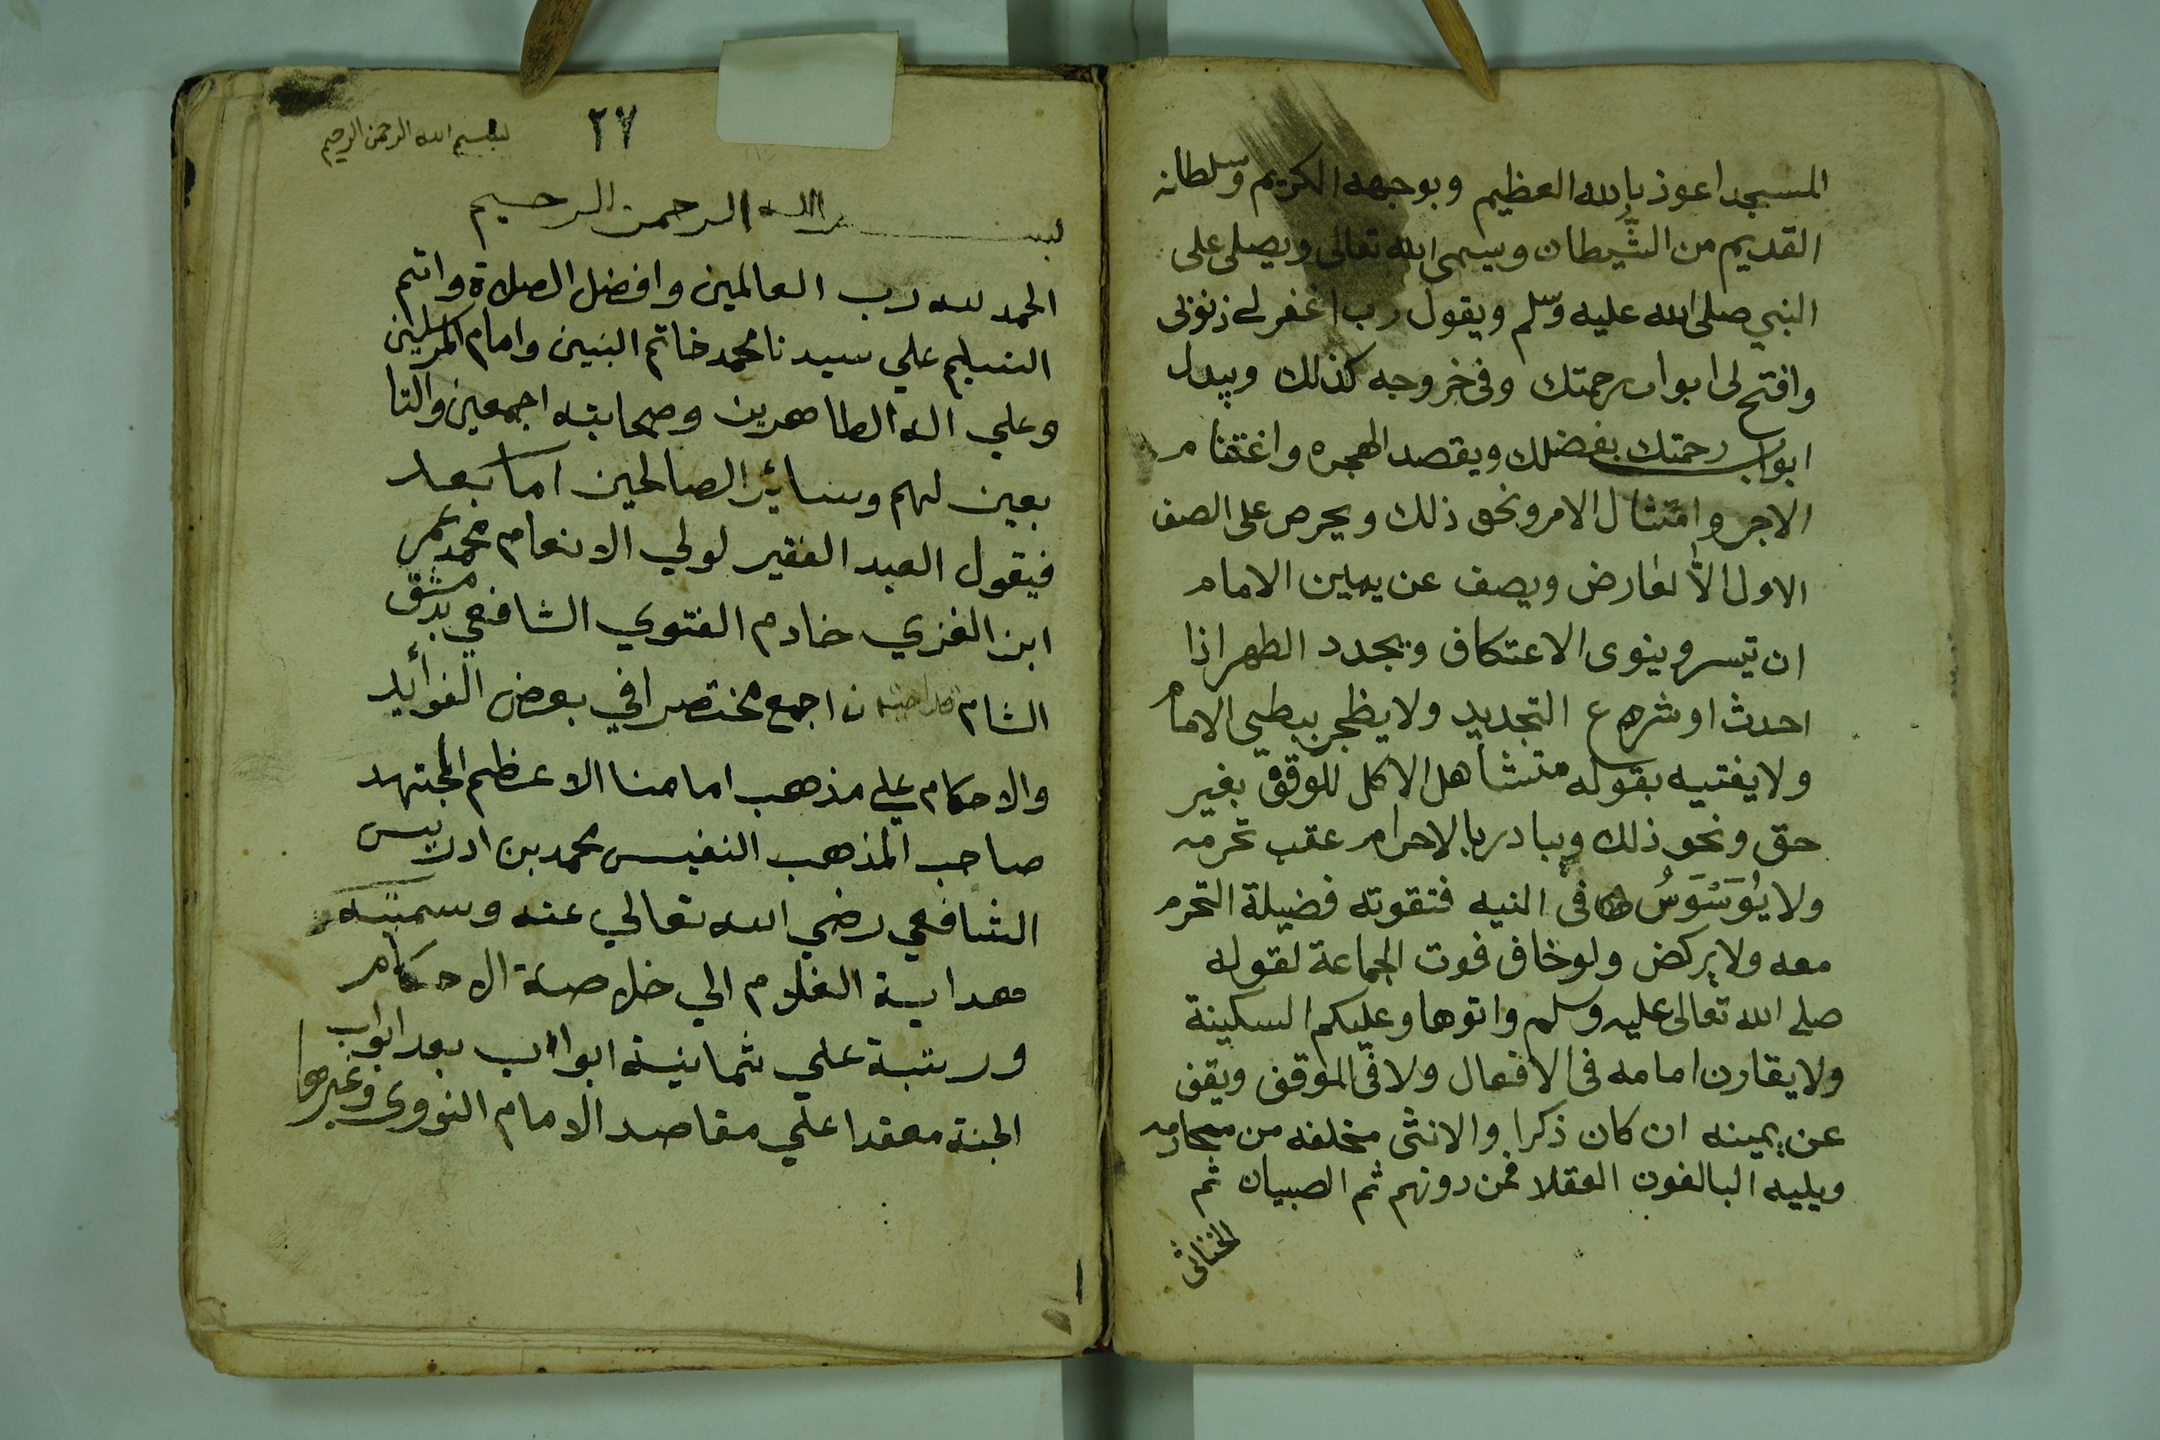 المسجد اعوذ بالله العظيم وبوجهه الكريم وسلطانه
القديم من الشيطان ويسمى الله تعالى ويصلى على
النبي صلى الله عليه وسلم ويقول رب اغفر لے ذنوبى
وافتح لى ابواب رحمتك وفى خروجه كذلك ويبدل
ابواب رحمتك بفضلك ويقصد الهجره واغتنام
الاجر وامتثال الامر ونحو ذلك ويحرص على الصف
الاول الا لعارض ويصف عن يمين الامام
ان تيسر وينوى الاعتكاف ويجدد الطهر اذا
احدث او شرع التجديد ولا يظجر ببطىء الامام
ولا يفتيه بقوله متشاهل الاكل للوقف بغير
حق ونحو ذلك ويبادر بالاحرام عقب تحرمه
ولا يوَسْوَسُ فى النيه فتفوته فضيلة التحرم
معه ولا يركض ولو خاف فوت الجماعة لقوله
صلى الله تعالى عليه وسلم واتوها وعليكم السكينة
ولا يقارن امامه فى الافعال ولا فى الموقف ويقف
عن يمينه ان كان ذكرا والانثى مخلفه من محارمه
ويليه البالغون العقلا فمن دونهم ثم الصبيان ثم
الخناثى
٢٧
بسم الله الرحمن الرحيم
بسم الله الرحمن الرحيم
الحمد لله رب العالمين وافضل الصلاة واتم
التسليم علي سيدنا محمد خاتم النبين وامام المرسلين
وعلي اله الطاهرين وصحابته اجمعين والتا
بعين لهم وسائر الصالحين اما بعد
فيقول العبد الفقير لولي الانعام محمد عمر
ابن الغزي خادم الفتوي الشافعي بدمشق
الشام ان اجمع مختصرا في بعض الفوائد
والاحكام علي مذهب امامنا الاعظم المجتهد
صاحب المذهب النفيس محمد بن ادريس
الشافعي رضي الله تعالي عنه وسميته
هداية الغلام الي خلاصة الاحكام
ورتبة علي ثمانية ابواب بعد ابواب
الجنة معقدا علي مقاصد الامام النووى وغيرها